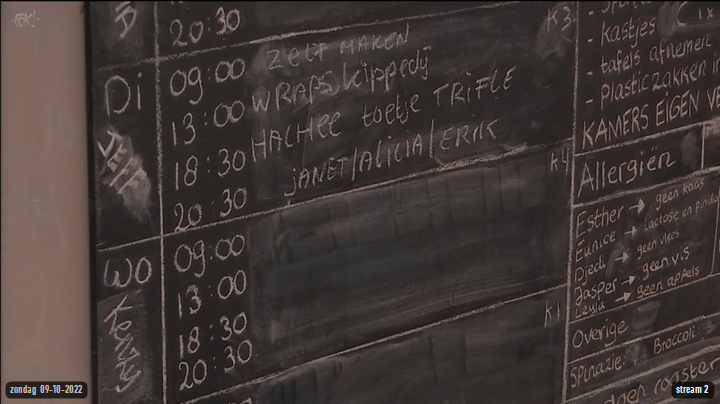 20:30
K3
Di
09:00 ZELF MAKEN
13:00 WRAPS kippedij
18:30 HACHEE toetje TRIFLE
20:30 JANET/ALICIA/ERIK
K4
WO
09:00
13:00
18:30
20:30
K1
- kastjes
1x
- tafels afnemen
- Plastic zakken
KAMERS EIGEN
Allergiën
Esther → geen kaas
Eunice → lactose en pinda
Djedi → geen vlees
Jasper → geen vis
Leyla → geen appels
Overige
Spinazie:
Broccoli:
zondag 09-10-2022
stream 2